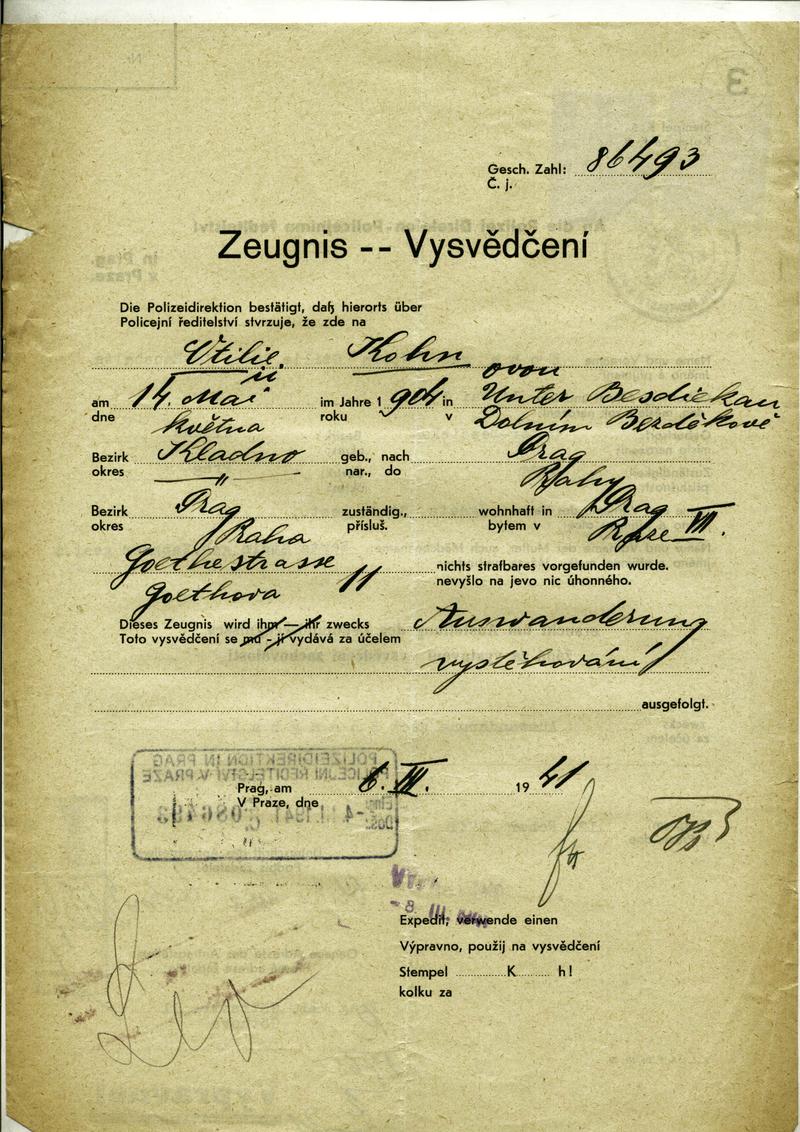 Gesch. Zahl: 86493
Č. j.
Zeugnis -- Vysvědčení
Die Polizeidirektion bestätigt, daß hierorts über
Policejní ředitelství stvrzuje, že zde na
Utilie Kohn
ii ovou
am 14. Mai im Jahre 1 904 in Unter Besdiekau
dne května roku v Dolním Bezděkově
Bezirk Kladno geb., nach Prag
okres " nar., do Prahy
Bezirk Prag zuständig., wohnhaft in Prag
okres Praha přísluš. bytem v Praze VII.
Goethestrasse nichts strafbares vorgefunden wurde.
Goethova 11 nevyšlo na jevo nic úhonného.
Dieses Zeugnis wird ihm — ihr zwecks Auswanderung
Toto vysvědčení se mu - jí vydává za účelem
vystěhování
ausgefolgt.
POLIZEIDIREKTION IN PRAG
POLICEJNÍ ŘEDITELSTVÍ V PRAZE
Prag, am 6. III. 19 41
V Praze, dne
Eing.: -4. III. 1941 086493
Doš.: Č.
-8. III.
Expedit, verwende einen
Výpravno, použij na vysvědčení
Stempel K h!
kolku za